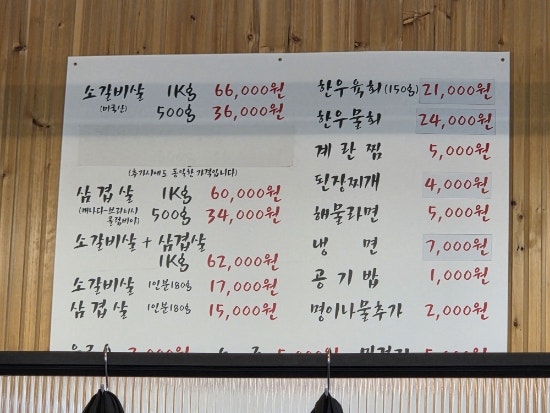 소갈비살 1Kg 66,000원
(미국산) 500g 36,000원
(추가시에도 동일한 가격입니다)
삼겹살 1Kg 60,000원
500g 34,000원
소갈비살 + 삼겹살
1Kg 62,000원
소갈비살 1인분180g 17,000원
삼겹살 1인분180g 15,000원
한우육회(150g) 21,000원
한우물회 24,000원
계란찜 5,000원
된장찌개 4,000원
해물라면 5,000원
냉면 7,000원
공기밥 1,000원
명이나물추가 2,000원